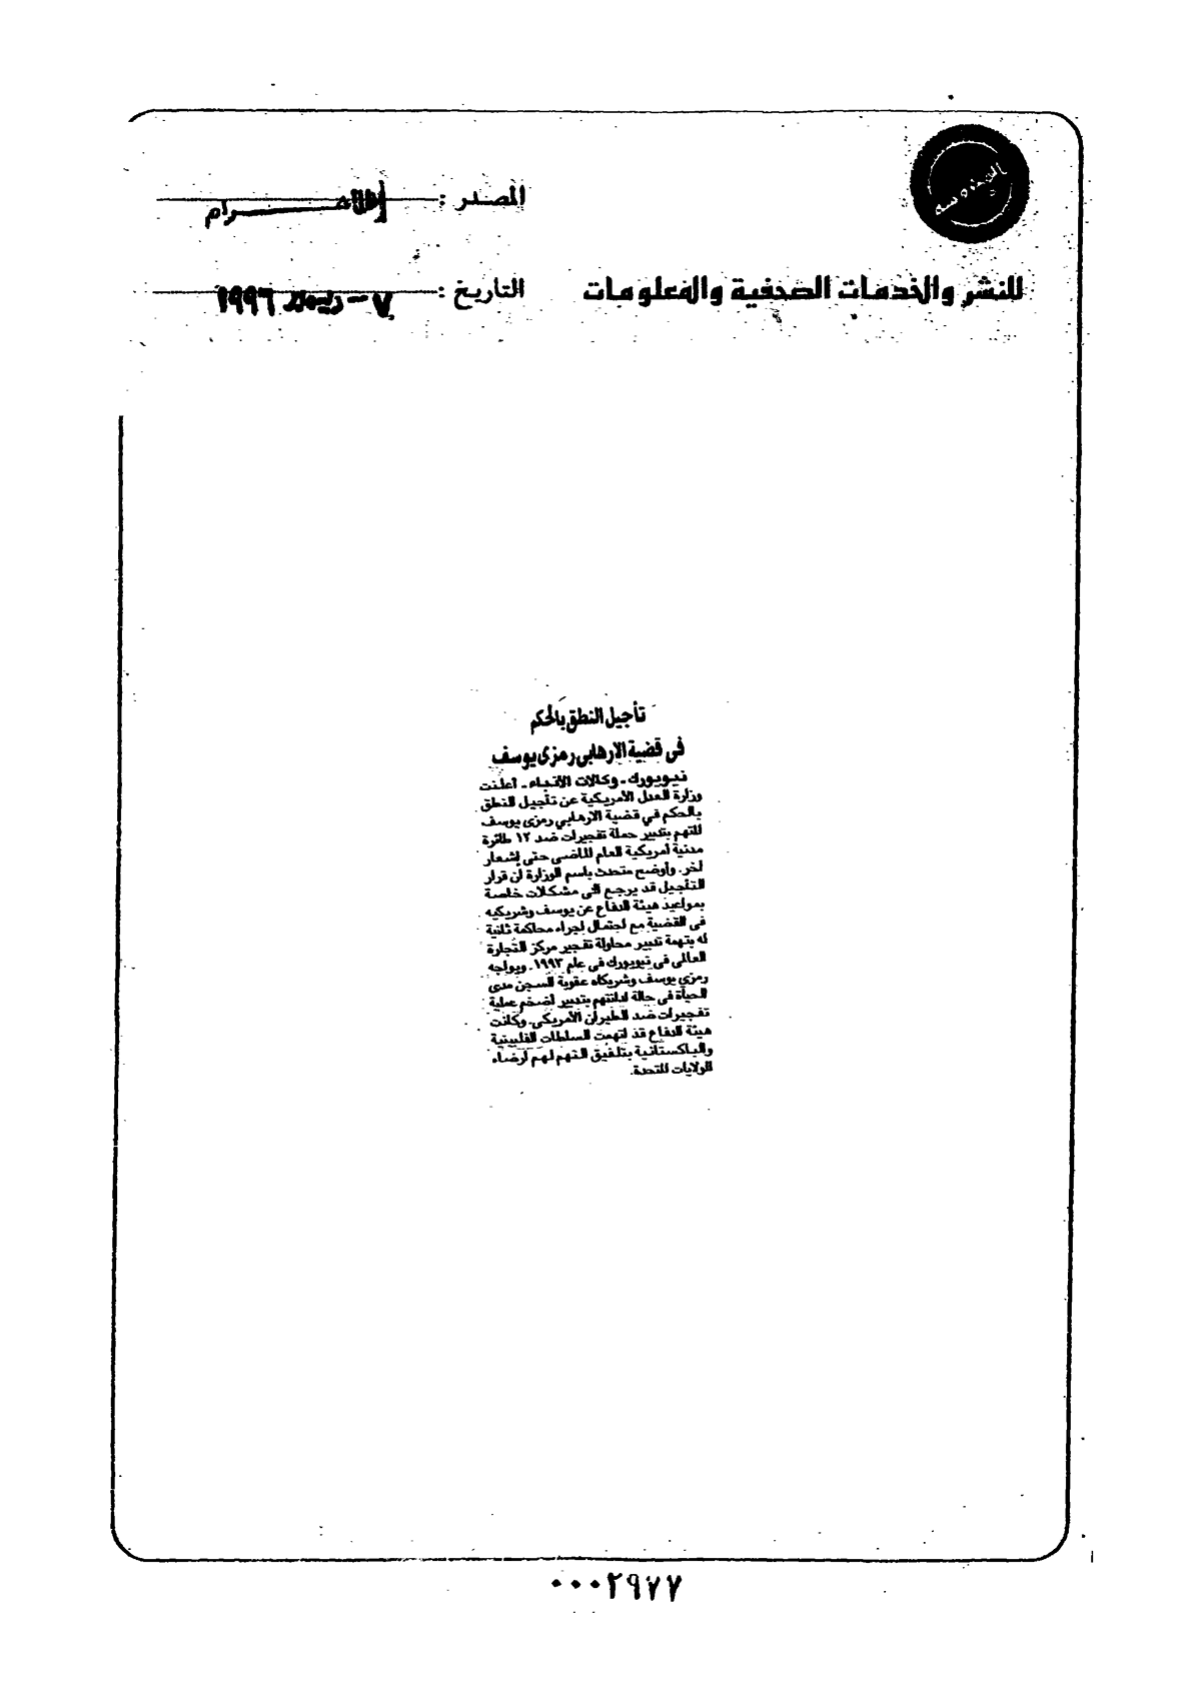 المحروسة
المصدر : الأهرام
للنشر والخدمات الصحفية والمعلومات
التاريخ : ٧ - ديسمبر ١٩٩٦
تأجيل النطق بالحكم
فى قضية الإرهابى رمزى يوسف
نيويورك ـ وكالات الأنباء ـ أعلنت
وزارة العدل الأمريكية عن تأجيل النطق
بالحكم في قضية الارهابي رمزى يوسف
المتهم بتدبير حملة تفجيرات ضد ١٢ طائرة
مدنية أمريكية العام الماضى حتى إشعار
آخر. وأوضح متحدث باسم الوزارة أن قرار
التأجيل قد يرجع الى مشكلات خاصة
بمواعيد هيئة الدفاع عن يوسف وشريكيه
فى القضية مع احتمال اجراء محاكمة ثانية
له بتهمة تدبير محاولة تفجير مركز التجارة
العالى فى نيويورك فى عام ١٩٩٣. ويواجه
رمزي يوسف وشريكاه عقوبة السجن مدى
الحياة فى حالة ادانتهم بتدبير أضخم عملية
تفجيرات ضد الطيران الأمريكى. وكانت
هيئة الدفاع قد اتهمت السلطات الفلبينية
والباكستانية بتلفيق التهم لهم ارضاء
للولايات المتحدة.
٠٠٠٢٩٧٧